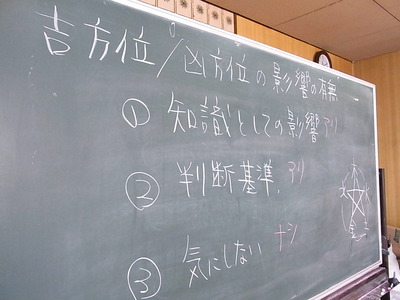 吉方位/凶方位の影響の有無
① 知識としての影響 アリ
② 判断基準. アリ
③ 気にしない ナシ
木
火
土
金
水